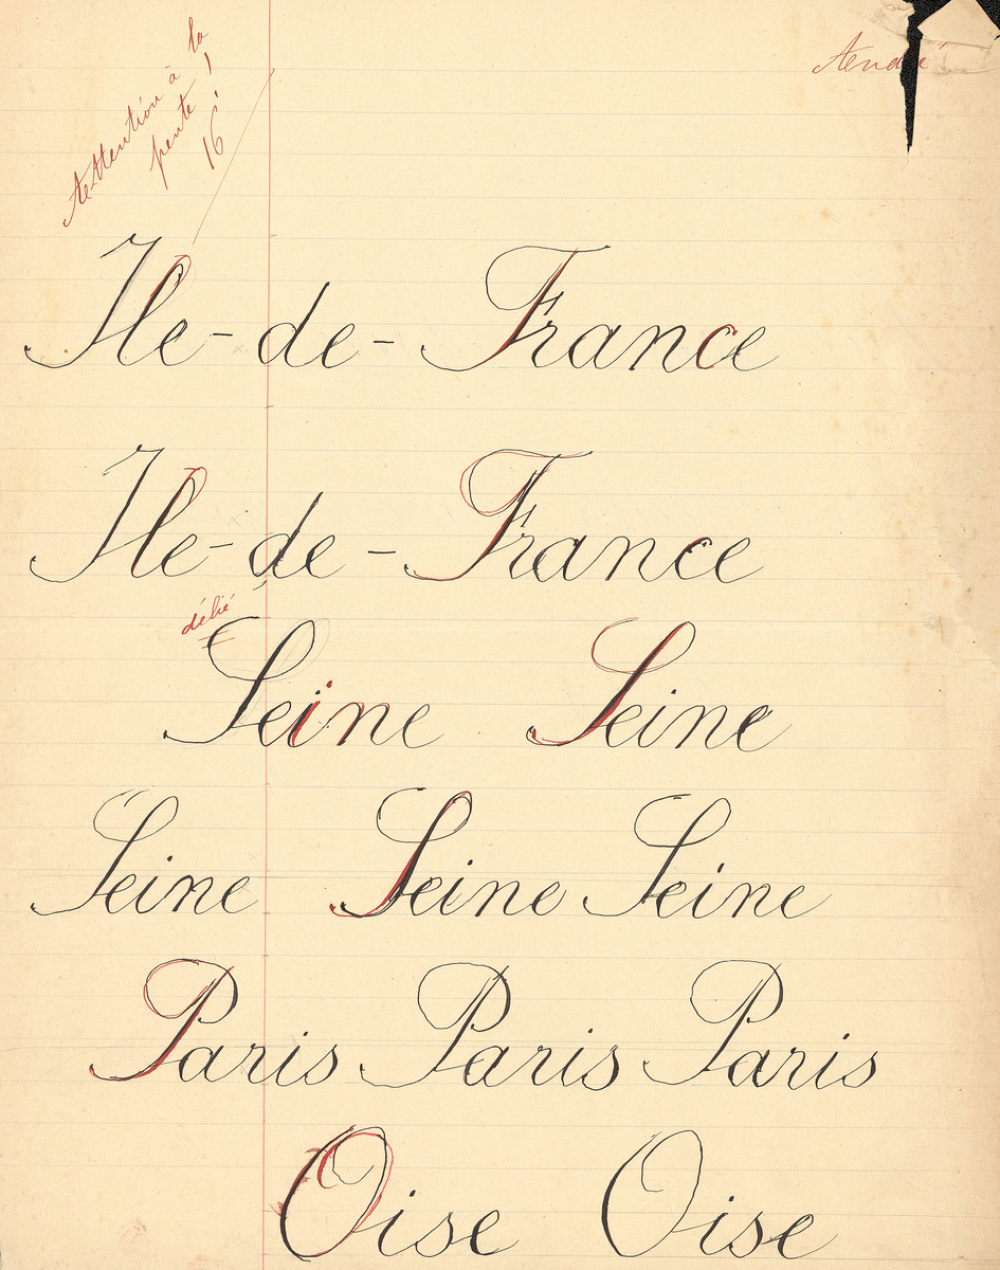 Attention à la
pente !
16
Ile-de-France
Ile-de-France
délié
Seine Seine
Seine Seine Seine
Paris Paris Paris
Oise Oise